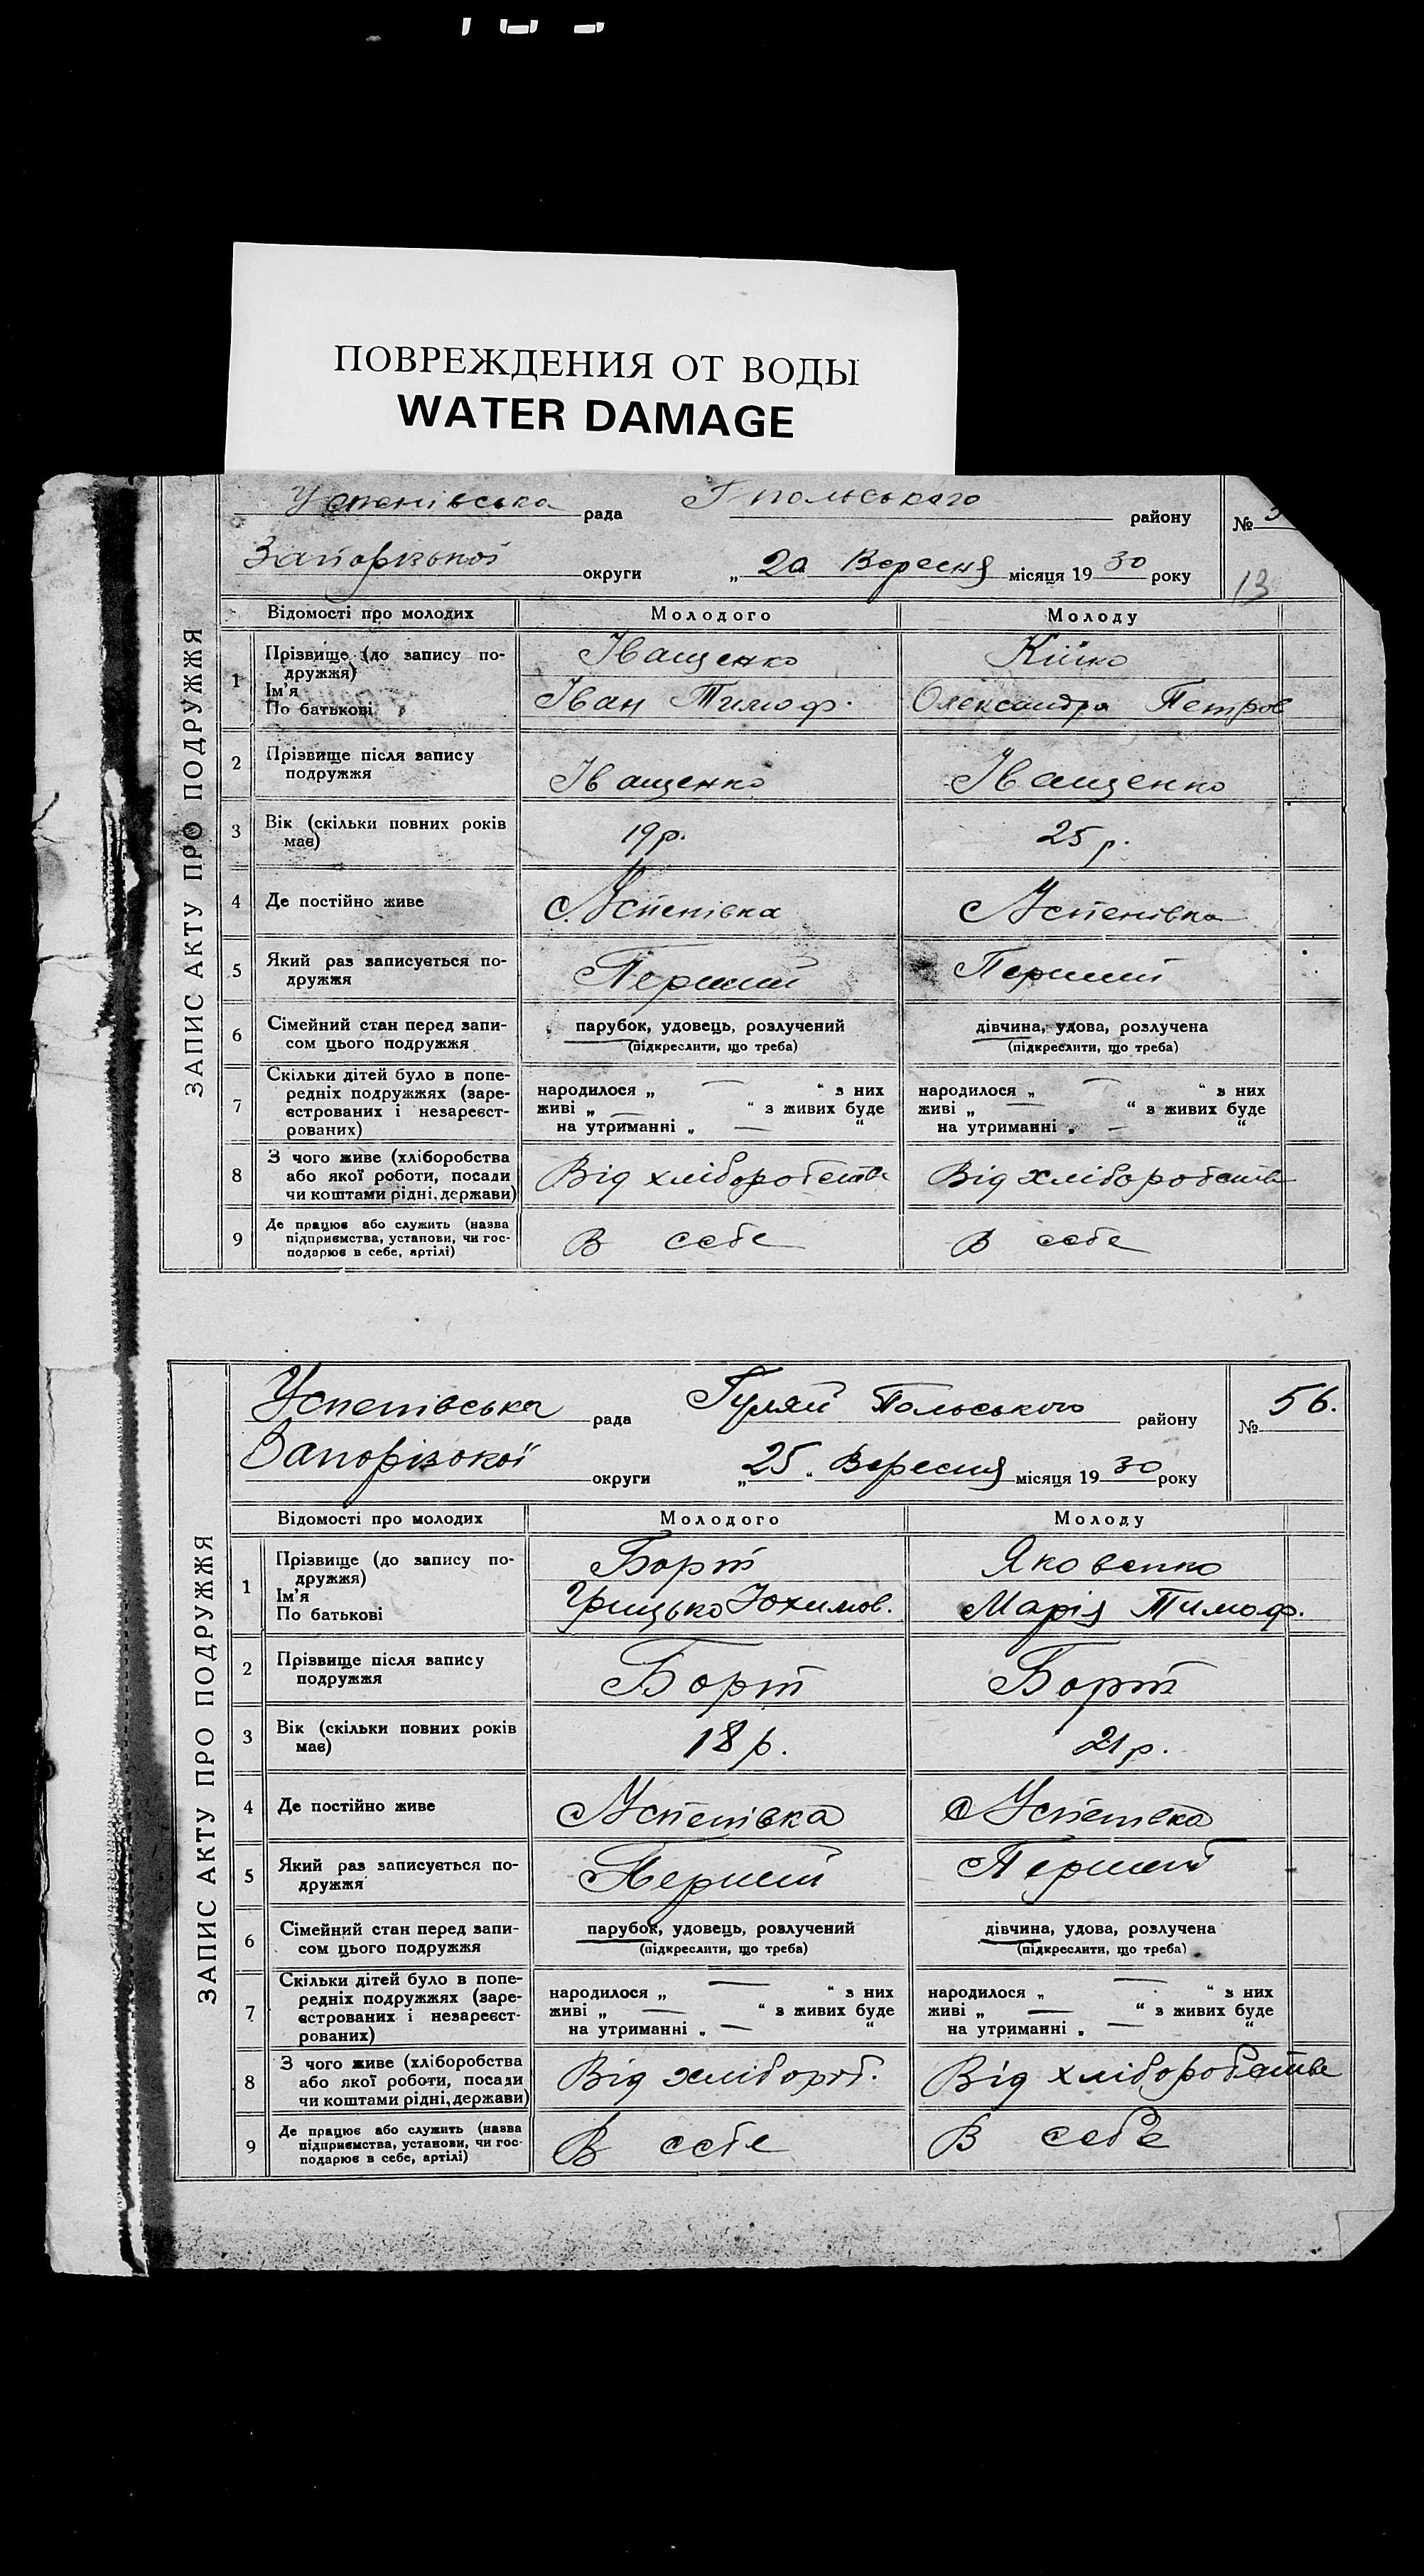 ПОВРЕЖДЕНИЯ ОТ ВОДЫ
WATER DAMAGE
Успенівська рада Г польського району №
Запорізької округи „ 20 Вересня місяця 19 30 року
13
ЗАПИС АКТУ ПРО ПОДРУЖЖЯ
Відомості про молодих Молодого Молоду
1 Прізвище (до запису по- Іващенко Кійко
дружжя)
Ім'я Іван Тимоф. Олександра Петров
По батькові
2 Прізвище після запису
подружжя Іващенко Іващенко
3 Вік (скільки повних років 19 р. 25 р.
має)
4 Де постійно живе с. Успенівка с Успенівка
5 Який раз записується по- Перший Перший
дружжя
6 Сімейний стан перед запи- парубок, удовець, розлучений дівчина, удова, розлучена
сом цього подружжя (підкреслити, що треба) (підкреслити, що треба)
7 Скільки дітей було в попе-
редніх подружжях (заре- народилося „ — “ з них народилося „ — “ з них
єстрованих і незареєст- живі „ — “ з живих буде живі „ — “ з живих буде
рованих) на утриманні „ — “ на утриманні „ — “
8 З чого живе (хліборобства
або якої роботи, посади Від хліборобства Від хліборобства
чи коштами рідні, держави)
9 Де працює або служить (назва
підприємства, установи, чи гос- В себе В себе
подарює в себе, артілі)
Успенівська рада Гуляй Польського району № 56.
Запорізокої округи „ 25 “ Вересня місяця 19 30 року
ЗАПИС АКТУ ПРО ПОДРУЖЖЯ
Відомості про молодих Молодого Молоду
1 Прізвище (до запису по- Борт Яковенко
дружжя)
Ім'я Грицько Юхимов. Марія Тимоф.
По батькові
2 Прізвище після запису
подружжя Борт Борт
3 Вік (скільки повних років 18 р. 21 р.
має)
4 Де постійно живе с Успенівка с Успенівка
5 Який раз записується по- Перший Перший
дружжя
6 Сімейний стан перед запи- парубок, удовець, розлучений дівчина, удова, розлучена
сом цього подружжя (підкреслити, що треба) (підкреслити, що треба)
7 Скільки дітей було в попе-
редніх подружжях (заре- народилося „ — “ з них народилося „ — “ з них
єстрованих і незареєст- живі „ — “ з живих буде живі „ — “ з живих буде
рованих) на утриманні „ — “ на утриманні „ — “
8 З чого живе (хліборобства
або якої роботи, посади Від хлібороб. Від хліборобства
чи коштами рідні, держави)
9 Де працює або служить (назва
підприємства, установи, чи гос- В себе В себе
подарює в себе, артілі)